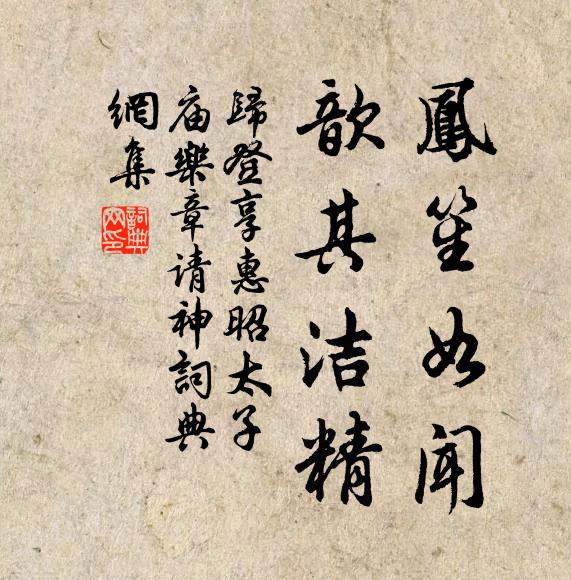 鳳笙如聞
歆其洁精
歸登享惠昭太子
庙樂章请神詞典
網集
詞典
网印